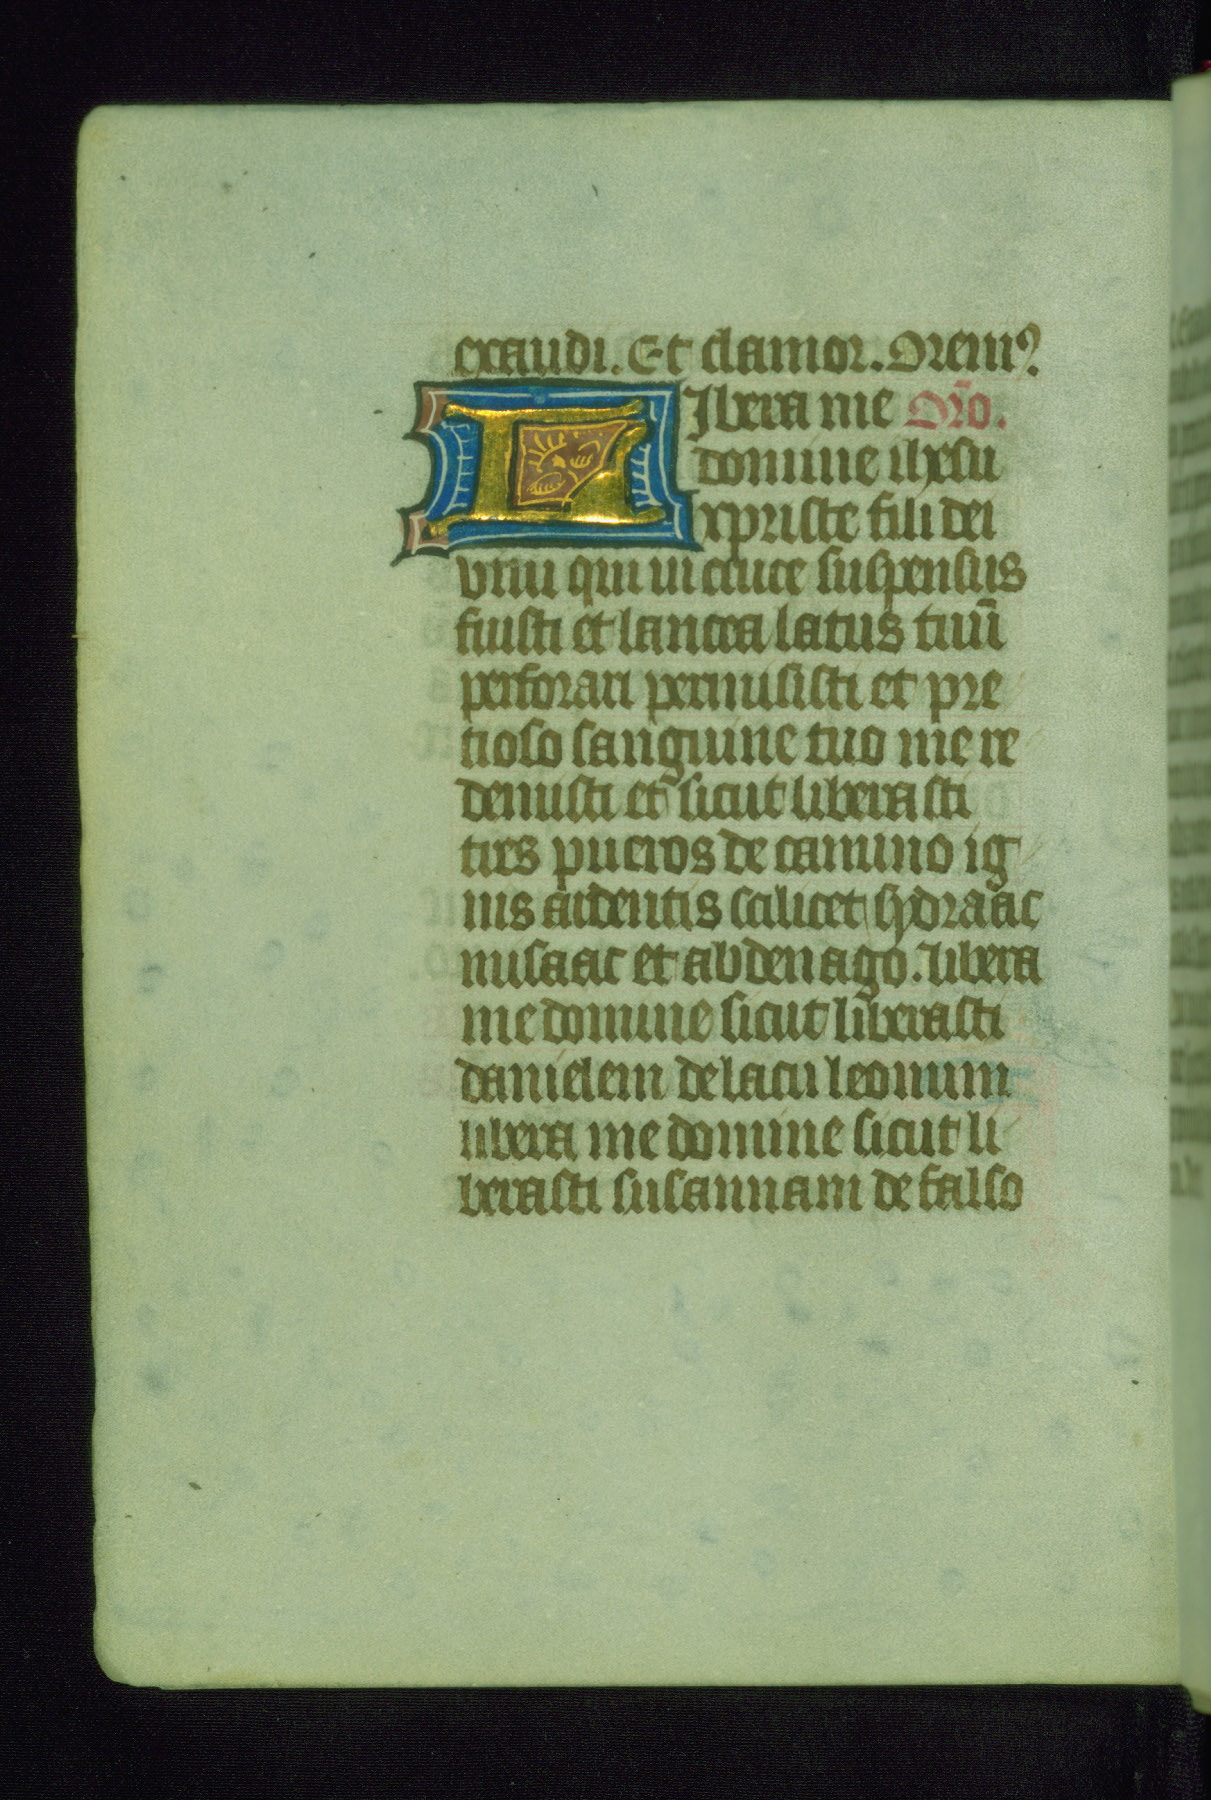 exaudi. Et clamor. Orem⁹.
LIbera me Or̄o.
domine ihesu
xpriste fili dei
viui qui in cruce suspensus
fuisti et lancea latus tuū
perforari permisisti et pre
tioso sanguine tuo me re
demisti et sicut liberasti
tres pueros de camino ig
nis ardentis scilicet sydraac
misaac et abdenago. libera
me domine sicut liberasti
danielem de lacu leonum
libera me domine sicut li
berasti susannam de falso